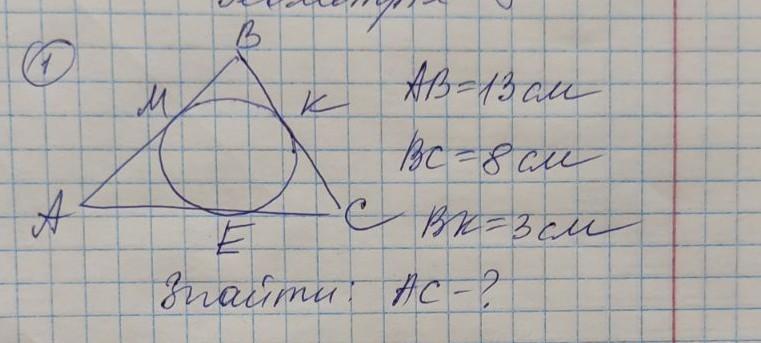 Геометрія
1
B
M
K
A
E
C
AB=13 см
BC=8 см
BK=3 см
Знайти: AC-?